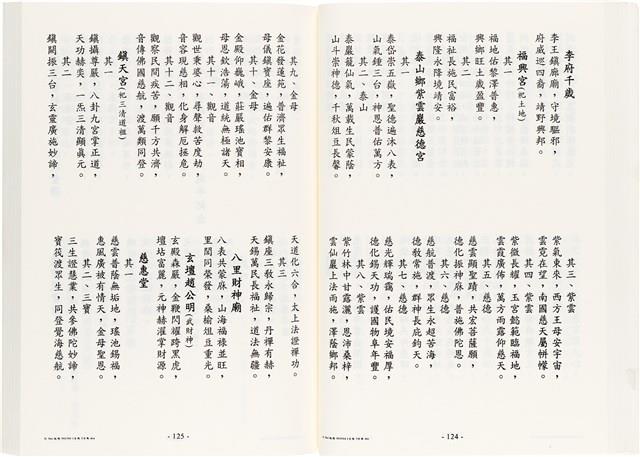 李府千歲
李王鎮廟廊，守境驅邪，
府威巡四裔，靖野興邦。
福興宮(祀土地)
其一
福地佑黎澤普惠，
興鄉旺土歲盈豐。
福祉長施民富裕，
興隆永降境靖安。
泰山鄉紫雲巖慈德宮
其一
泰岱崇五嶽，聖德遍沐八表，
山氣鍾三台，神恩普佑萬方。
其二、泰山
泰巖龍仙氣，萬載生民蒙蔭，
山斗崇神德，千秋俎豆長馨。
其三、紫雲
紫氣東來，西方王母安宇宙，
雲霓在望，南國慈天屬帡幪。
其四、紫雲
紫微長耀，玉宮懿範臨福地，
雲霞廣佈，萬方雨露仰慈天。
其五、慈德
慈雲顯聖蹟，共宏菩薩願，
德化振神麻，普施佛陀恩。
其六、慈德
慈航普渡，眾生永超苦海，
德教合施，群神長庇鈞天。
其七、慈德
慈光輝瑞靄，佑民境安福厚，
德化錫天功，護國物阜年豐。
其八、紫雲
紫竹林中甘露灑，恩沛桑梓，
雲仙巖上法雨施，澤蔭鄉邦。
- 124 -
其九、金母
金花發蓮苑，普濟眾生福祉，
母儀鎮寶座，遍佑群黎安康。
其十、金母
金殿仰巍峨，莊嚴瑤池寶相，
母恩欽浩蕩，道統無極諸天。
其十一、觀音
觀世秉婆心，尋聲救苦度劫，
音容現慈相，化身解厄摇危。
其十二、觀音
觀察民間疾苦，願千方共濟，
音傳佛國慈航，渡萬類同登。
鎮天宮(祀三清道祖)
其一
鎮攝尊嚴，八卦九宮掌正道，
天功赫奕，一炁三清顯真元。
其二
鎮關振三台，玄靈廣施妙諦，
天道化六合，太上法證禪功。
其三
鎮座三教永歸宗，丹禪有赫，
天錫萬民長福祉，道法無疆。
八里財神廟
八表共蒙麻，山海福祿並旺，
里閭同榮發，桑榆俎豆重光。
玄壇趙公明(武財神)
玄殿森嚴，金鞭閃耀跨黑虎，
壇坫富麗，元神赫濯掌財源。
慈惠堂
其一
慈雲普蔭無垢地，瑤池錫福，
惠風廣被有情天，金母聖恩。
其二、三寶
三生證慧業，共參佛陀妙諦，
寶筏渡眾生，同登覺海慈航。
- 125 -